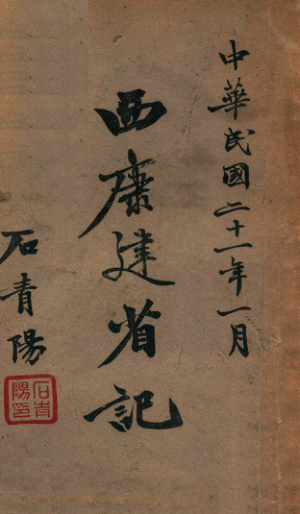 中華民國二十一年一月
西康建省記
石青陽
石青陽印